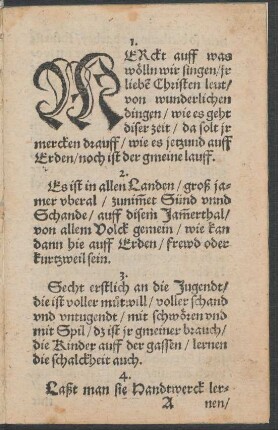 1.
MERckt auff was
wölln wir singen/jr
liebē Christen leut/
von wunderlichen
dingen / wie es geht
diser zeit / da solt jr
mercken drauff/wie es jetzund auff
Erden/noch ist der gmeine lauff.
2.
Es ist in allen Landen / groß ja-
mer vberal / zunim̄et Sünd vnnd
Schande/ auff disem Jam̄erthal/
von allem Volck gemein / wie kan
dann hie auff Erden / frewd oder
kurtzweil sein.
3.
Secht erstlich an die Jugendt/
die ist voller mūtwill/ voller schand
vnd vntugendt / mit schwören vnd
mit Spil/ dz ist jr gmeiner brauch/
die Kinder auff der gassen / lernen
die schalckheit auch.
4.
Laßt man sie Handtwerck ler-
A nen/